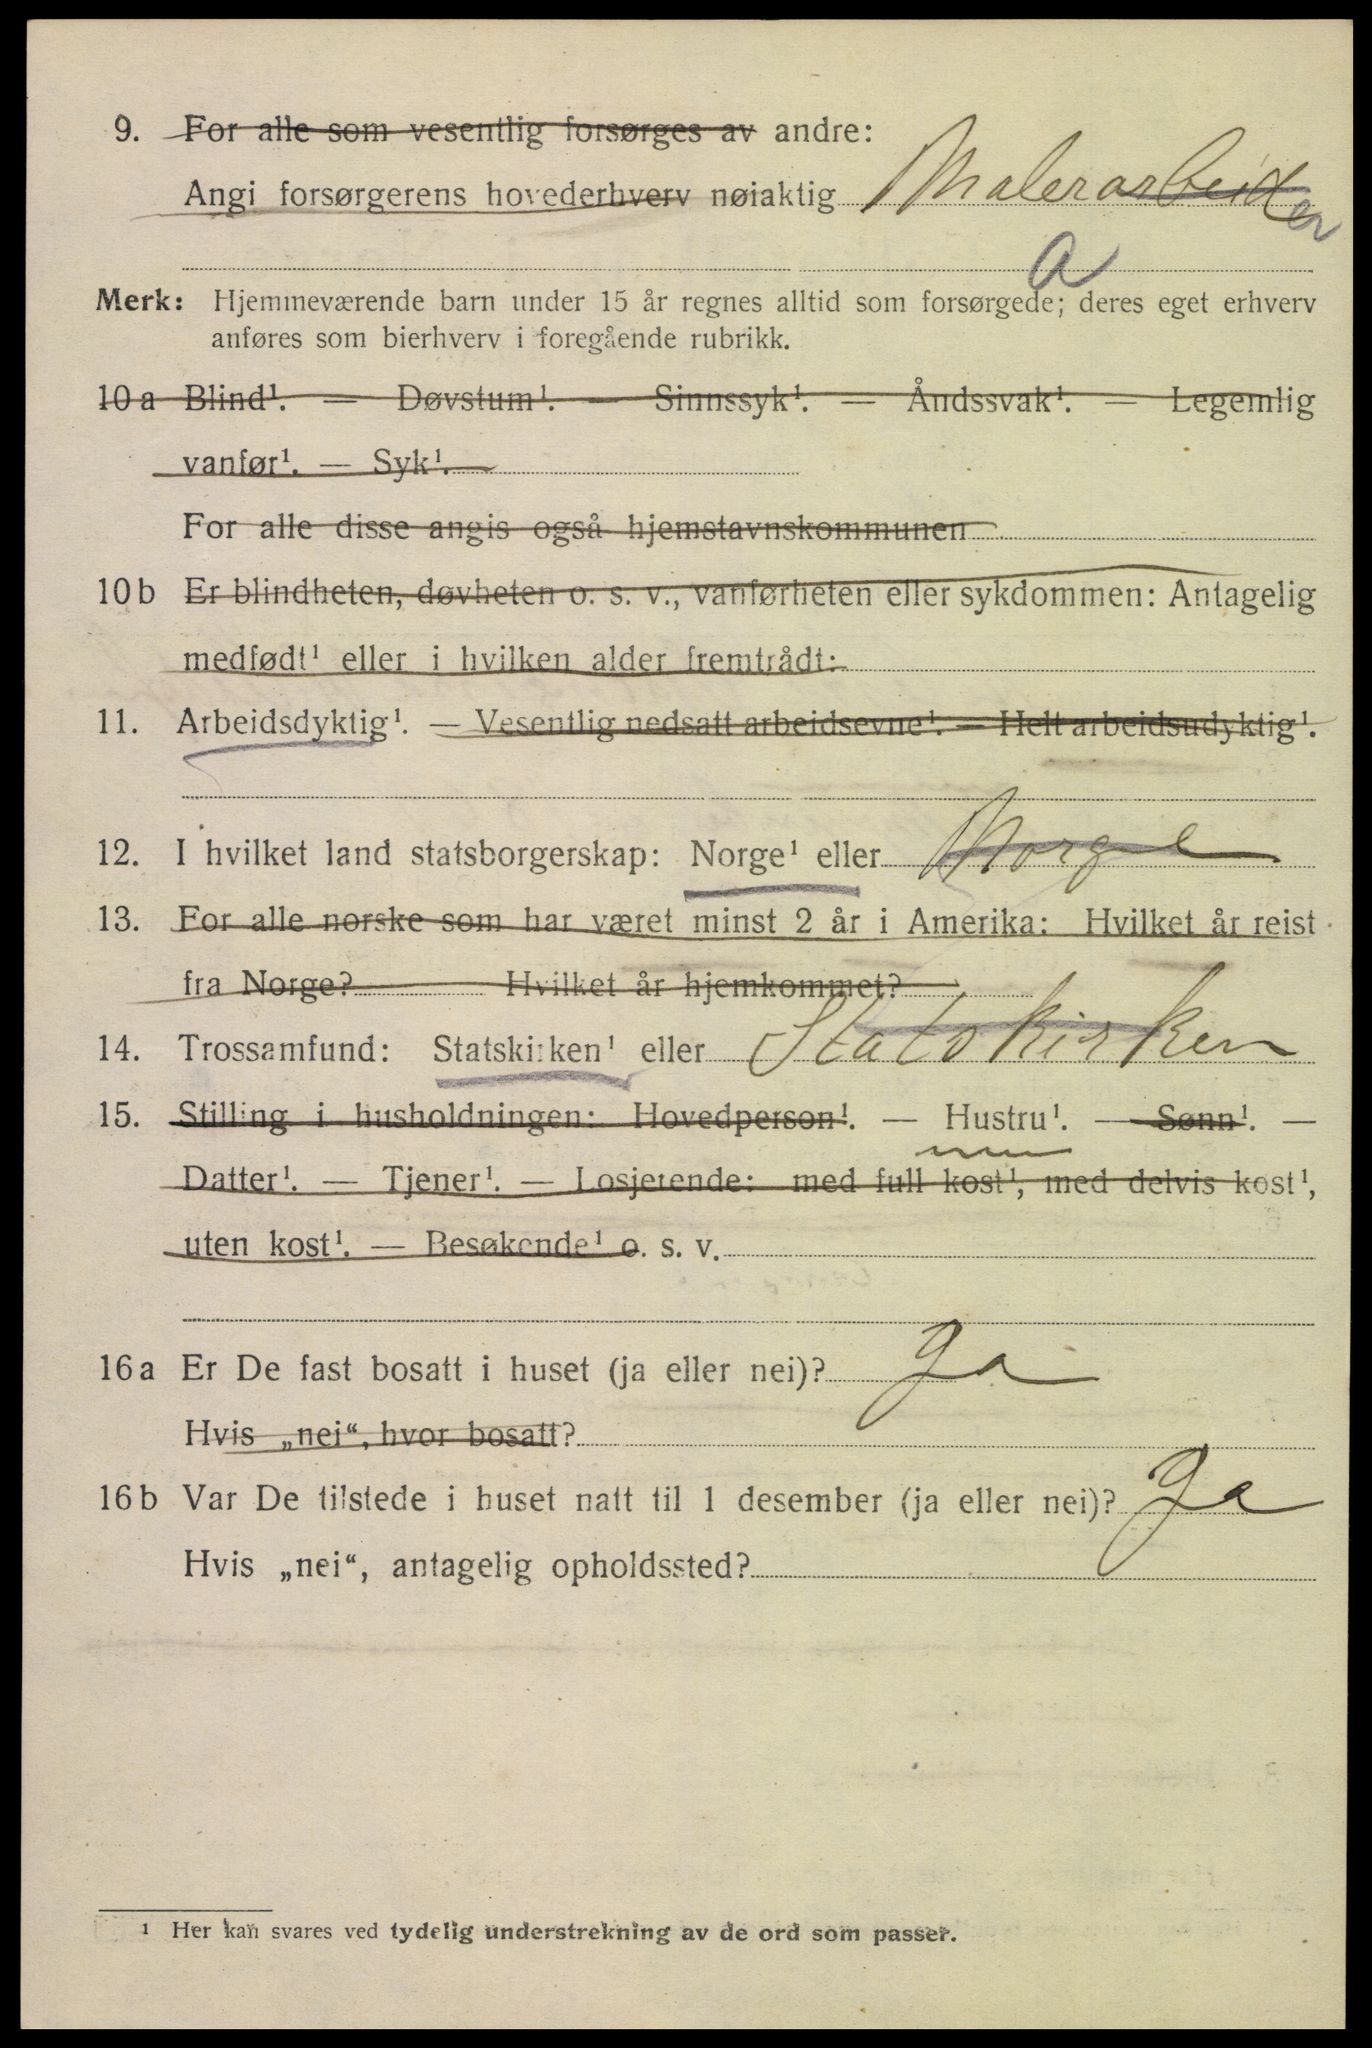 9. For alle som vesentlig forsørges av andre:
Angi forsørgerens hovederhverv nøiaktig Malerarbeider
a
Merk: Hjemmeværende barn under 15 år regnes alltid som forsørgede; deres eget erhverv
anføres som bierhverv i foregående rubrikk.
10a Blind¹. — Døvstum¹. — Sinnssyk¹. — Åndssvak¹. — Legemlig
vanfør¹. — Syk¹.
For alle disse angis også hjemstavnskommunen
10b Er blindheten, døvheten o. s. v., vanførheten eller sykdommen: Antagelig
medfødt¹ eller i hvilken alder fremtrådt:
11. Arbeidsdyktig¹. — Vesentlig nedsatt arbeidsevne¹. — Helt arbeidsudyktig¹.
12. I hvilket land statsborgerskap: Norge¹ eller Norge
13. For alle norske som har været minst 2 år i Amerika: Hvilket år reist
fra Norge? Hvilket år hjemkommet?
14. Trossamfund: Statskirken¹ eller Statskirken
15. Stilling i husholdningen: Hovedperson¹. — Hustru¹. — Sønn¹. —
Datter¹. — Tjener¹. — Losjerende: med full kost¹, med delvis kost¹,
uten kost¹. — Besøkende¹ o. s. v.
16a Er De fast bosatt i huset (ja eller nei)? Ja
Hvis „nei“, hvor bosatt?
16b Var De tilstede i huset natt til 1 desember (ja eller nei)? Ja
Hvis „nei“, antagelig opholdssted?
¹ Her kan svares ved tydelig understrekning av de ord som passer.